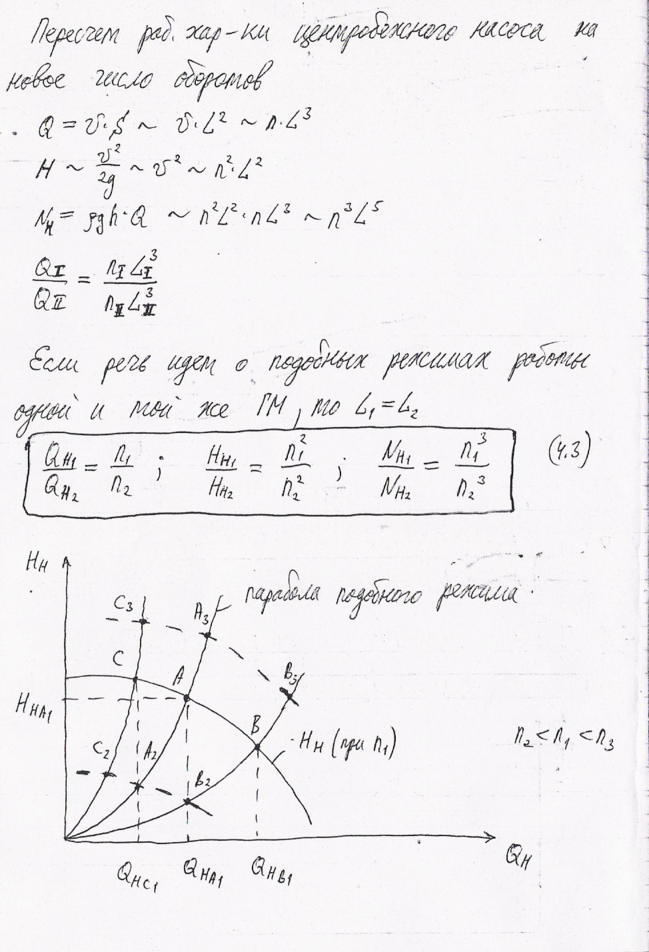 Пересчет раб. хар-ки центробежного насоса на
новое число оборотов
Q = v·S ~ v·L² ~ n·L³
H ~ v²/2g ~ v² ~ n²·L²
Nн = ρgh·Q ~ n²L²·nL³ ~ n³L⁵
QI/QII = nI LI³/nII LII³
Если речь идет о подобных режимах работы
одной и той же ГМ, то L₁=L₂
Qн₁/Qн₂ = n₁/n₂ ; Hн₁/Hн₂ = n₁²/n₂² ; Nн₁/Nн₂ = n₁³/n₂³ (4.3)
Hн
C₃ A₃ парабола подобного режима
C A B₃
HнA1
B Hн (при n₁) n₂ < n₁ < n₃
C₂ A₂ B₂
Qн
QнC1 QнA1 QнB1